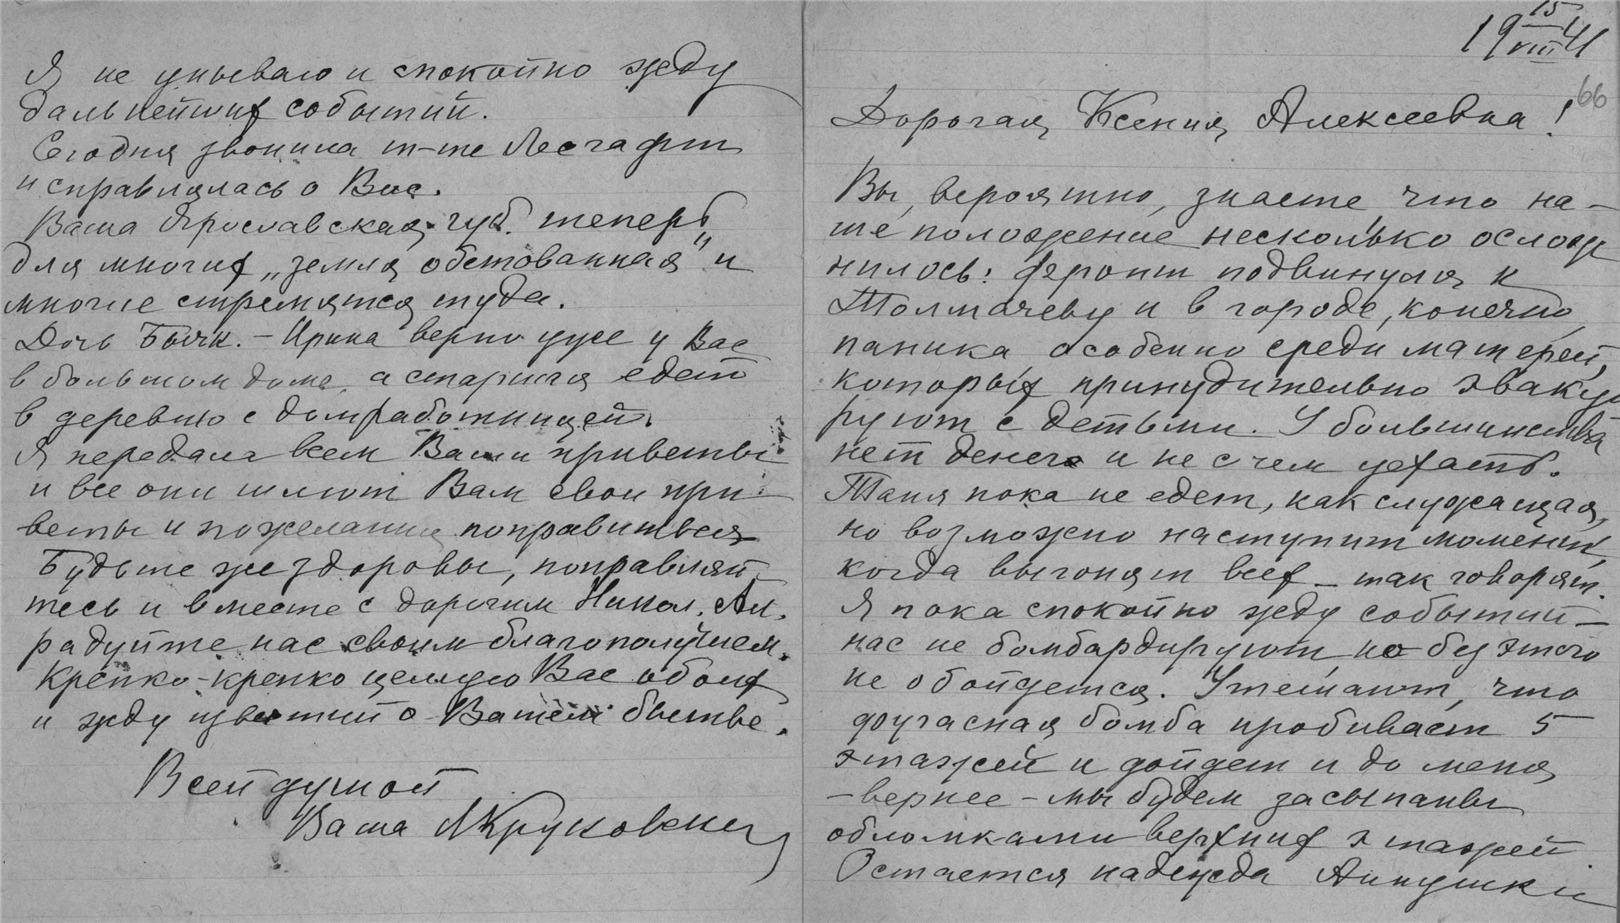 15
19 VIII 41
66
Дорогая Ксения Алексеевна!
Вы, вероятно, знаете, что на-
ше положение несколько ослож
нилось: фронт подвинулся к
Толмачеву и в городе, конечно,
паника особенно среди матерей,
которых принудительно эвакуи
руют с детьми. У большинства
нет денег и не с чем уехать.
Таня пока не едет, как служащая,
но возможно наступит момент,
когда выгонят всех – так говорят.
Я пока спокойно жду событий –
нас не бомбардируют, но без этого
не обойдется. Утешают, что
фугасная бомба пробивает 5
этажей и дойдет и до меня,
– вернее – мы будем засыпаны
обломками верхних этажей
Остается надежда Аннушки
Я не унываю и спокойно жду
дальнейших событий.
Сегодня звонила m-me Лесгафт
и справлялась о Вас.
Ваша Ярославская губ. теперь
для многих „земля обетованная" и
многие стремятся туда.
Дочь Бычк. – Ирина верно уже у Вас
в большом доме, а старшая едет
в деревню с домработницей.
Я передала всем Ваши приветы
и все они шлют Вам свои при-
веты и пожелания поправиться
Будьте же здоровы, поправляй
тесь и вместе с дорогим Никол. Ал.
радуйте нас своим благополучием.
Крепко-крепко целую Вас обоих
и жду известий о Вашем бытье.
Всей душой
Ваша МКруковская